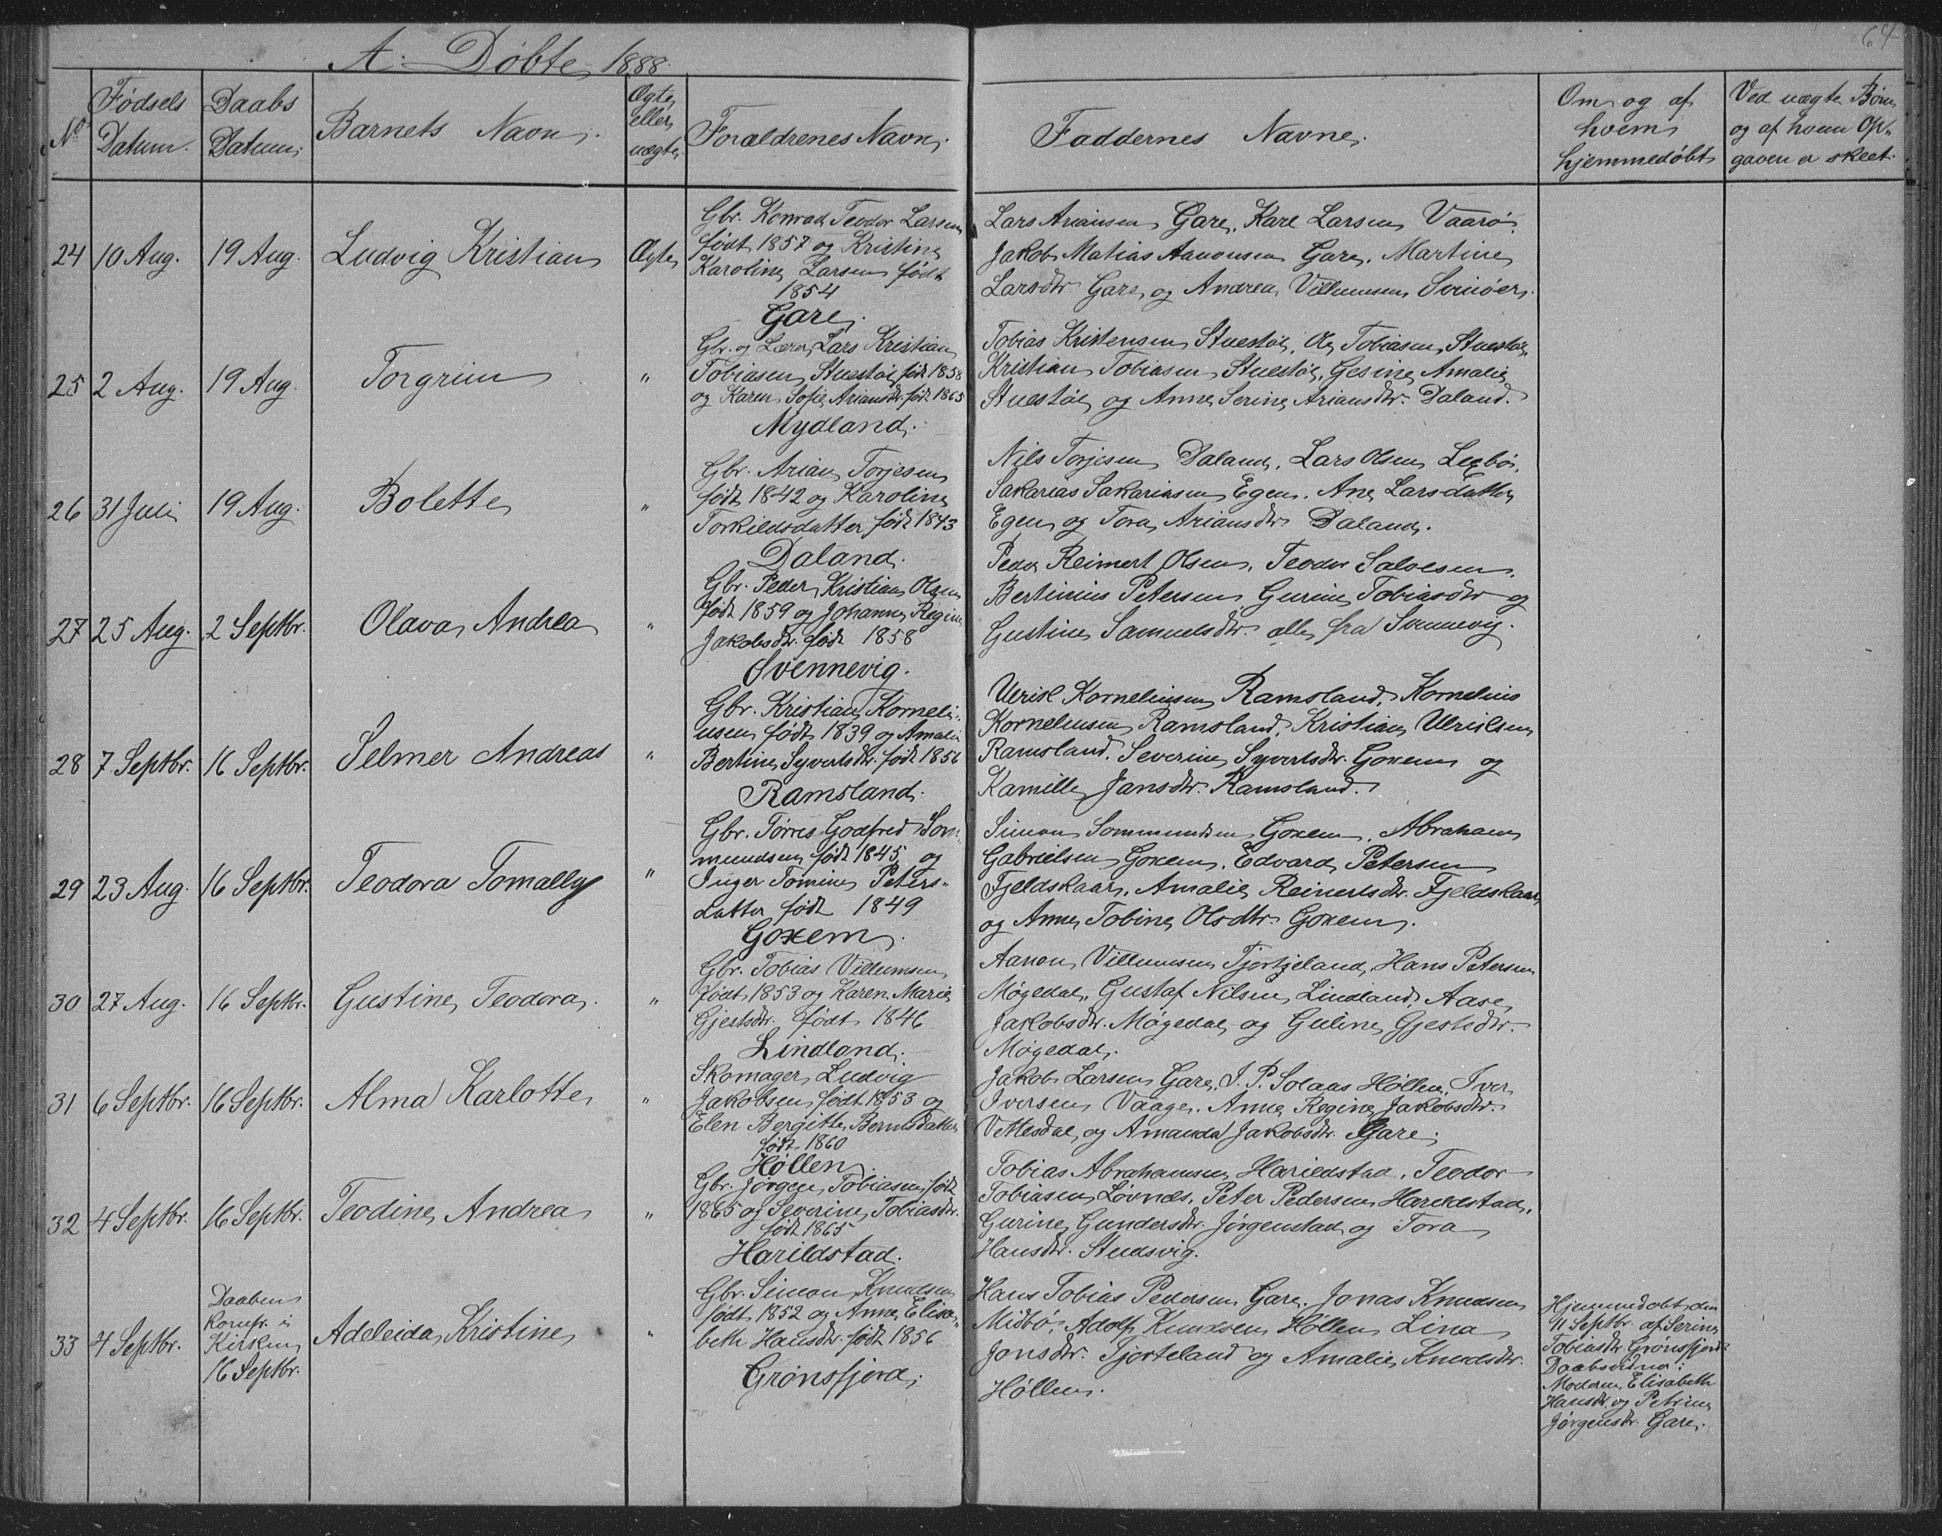 64
A. Døbte 1888.
No
Fødsels
Datum.
Daabs
Datum.
Barnets Navn.
Ægte
eller
uægte
Forældrenes Navn.
Faddernes Navne.
Om og af
hvem
hjemmedøbt
Ved uægte Børn
og af hvem Op-
gaven er skeet.
24 10 Aug. 19 Aug. Ludvig Kristian Ægte
Gbr. Konrad Teodor Larsen
født 1857 og Kristine
Karoline Larsen født
1854
Gare.
Lars Ariansen Gare, Kare Larsen Vaarø,
Jakob Matias Aanonsen Gare, Martine
Larsdtr Gare og Andrea Villumsen Svinøer.
25 2 Aug. 19 Aug. Torgrim "
Gbr. og Lærer Lars Kristian
Tobiasen Stuestøl født 1858
og Karen Sofie Ariansdtr. født 1865
Mydland.
Tobias Kristensen Stuestøl, Ole Tobiasen Stuestøl,
Kristian Tobiasen Stuestøl, Gesine Amalie
Stuestøl og Anne Serine Ariansdtr. Daland.
26 31 Juli 19 Aug. Bolette "
Gbr. Arian Torjesen
født 1842 og Karoline
Torkildsdatter født 1843
Daland.
Nils Torjesen Daland, Lars Olsen Lexbø,
Sakarias Sakariasen Egen, Ane Larsdatter
Egen og Tora Ariansdtr Daland.
27 25 Aug. 2 Septbr. Olava Andrea "
Gbr. Peder Kristian Olsen
født 1859 og Johanne Regine
Jakobsdtr. født 1858
Svennevig.
Peder Reinert Olsen, Teodor Salvesen,
Bertinius Petersen, Gurine Tobiasdtr og
Gustine Samuelsdtr. alle fra Svennevig.
28 7 Septbr. 16 Septbr. Selmer Andreas "
Gbr. Kristian Korneli-
usen født 1839 og Amalie
Bertine Syvertsdtr. født 1856
Ramsland.
Ulrik Korneliusen Ramsland, Kornelius
Korneliusen Ramsland, Kristian Ulriksen
Ramsland, Severine Syvertsdtr. Goxem og
Kamille Jansdtr. Ramsland.
29 23 Aug. 16 Septbr. Teodora Tomally "
Gbr. Tørres Godfred Som-
mundsen født 1845 og
Inger Tomine Peters-
datter født 1849
Goxem.
Simon Sommundsen Goxem, Abraham
Gabrielsen Goxem, Edvard Petersen
Fjeldskaar, Amalie Reinertsdtr. Fjeldskaar
og Anne Tobine Olsdtr. Goxem.
30 27 Aug. 16 Septbr. Gustine Teodora. "
Gbr. Tobias Villumsen
født 1853 og Karen Marie
Gjestsdtr. født 1846
Lindland.
Aanon Villumsen Tjortjeland, Hans Petersen
Møgedal, Gustaf Nilsen Lindland, Aase
Jakobsdtr. Møgedal og Guline Gjestsdtr.
Møgedal.
31 6 Septbr. 16 Septbr. Alma Karlotte "
Skomager Ludvig
Jakobsen født 1853 og
Elen Bergitte Berntsdatter
født 1860
Høllen.
Jakob Larsen Gare, J. P. Solaas Høllen, Iver
Iversen Vaage, Anne Regine Jakobsdtr.
Vettesdal og Amanda Jakobsdtr. Gare.
32 4 Septbr. 16 Septbr. Teodine Andrea "
Gbr. Jørgen Tobiasen født
1865 og Severine Tobiasdtr.
født 1865
Harildstad.
Tobias Abrahamsen Harildstad, Teodor
Tobiasen Løvnes, Peter Pedersen Harildstad,
Gurine Gundersdtr. Jørgenstad og Tora
Hansdtr. Studsvig.
33 4 Septbr.
Daaben
Konfr. i
Kirken
16 Septbr.
Adeleida Kristine "
Gbr. Simon Knudsen
født 1852 og Anne Elisa-
beth Hansdtr. født 1856
Grønsfjord.
Hans Tobias Pedersen Gare, Jonas Knudsen
Midbø, Adolf Knudsen Høllen, Lina
Jonsdtr. Tjorteland og Amalie Knudsdtr.
Høllen.
Hjemmedøbt den
11 Septbr. af Serine
Tobiasdtr. Grønsfjord
Daabsvidner:
Moderen Elisabeth
Hansdtr. og Petrine
Jørgensdtr. Gare.